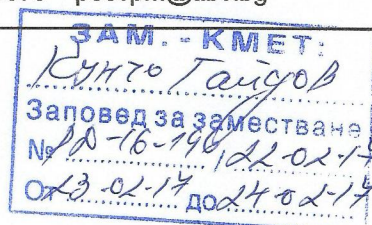 ЗАМ. - КМЕТ:
Кунчо Гайдов
Заповед за заместване
№ РД-16-199 / 22-02-17
От 23-02-17 до 24-02-17